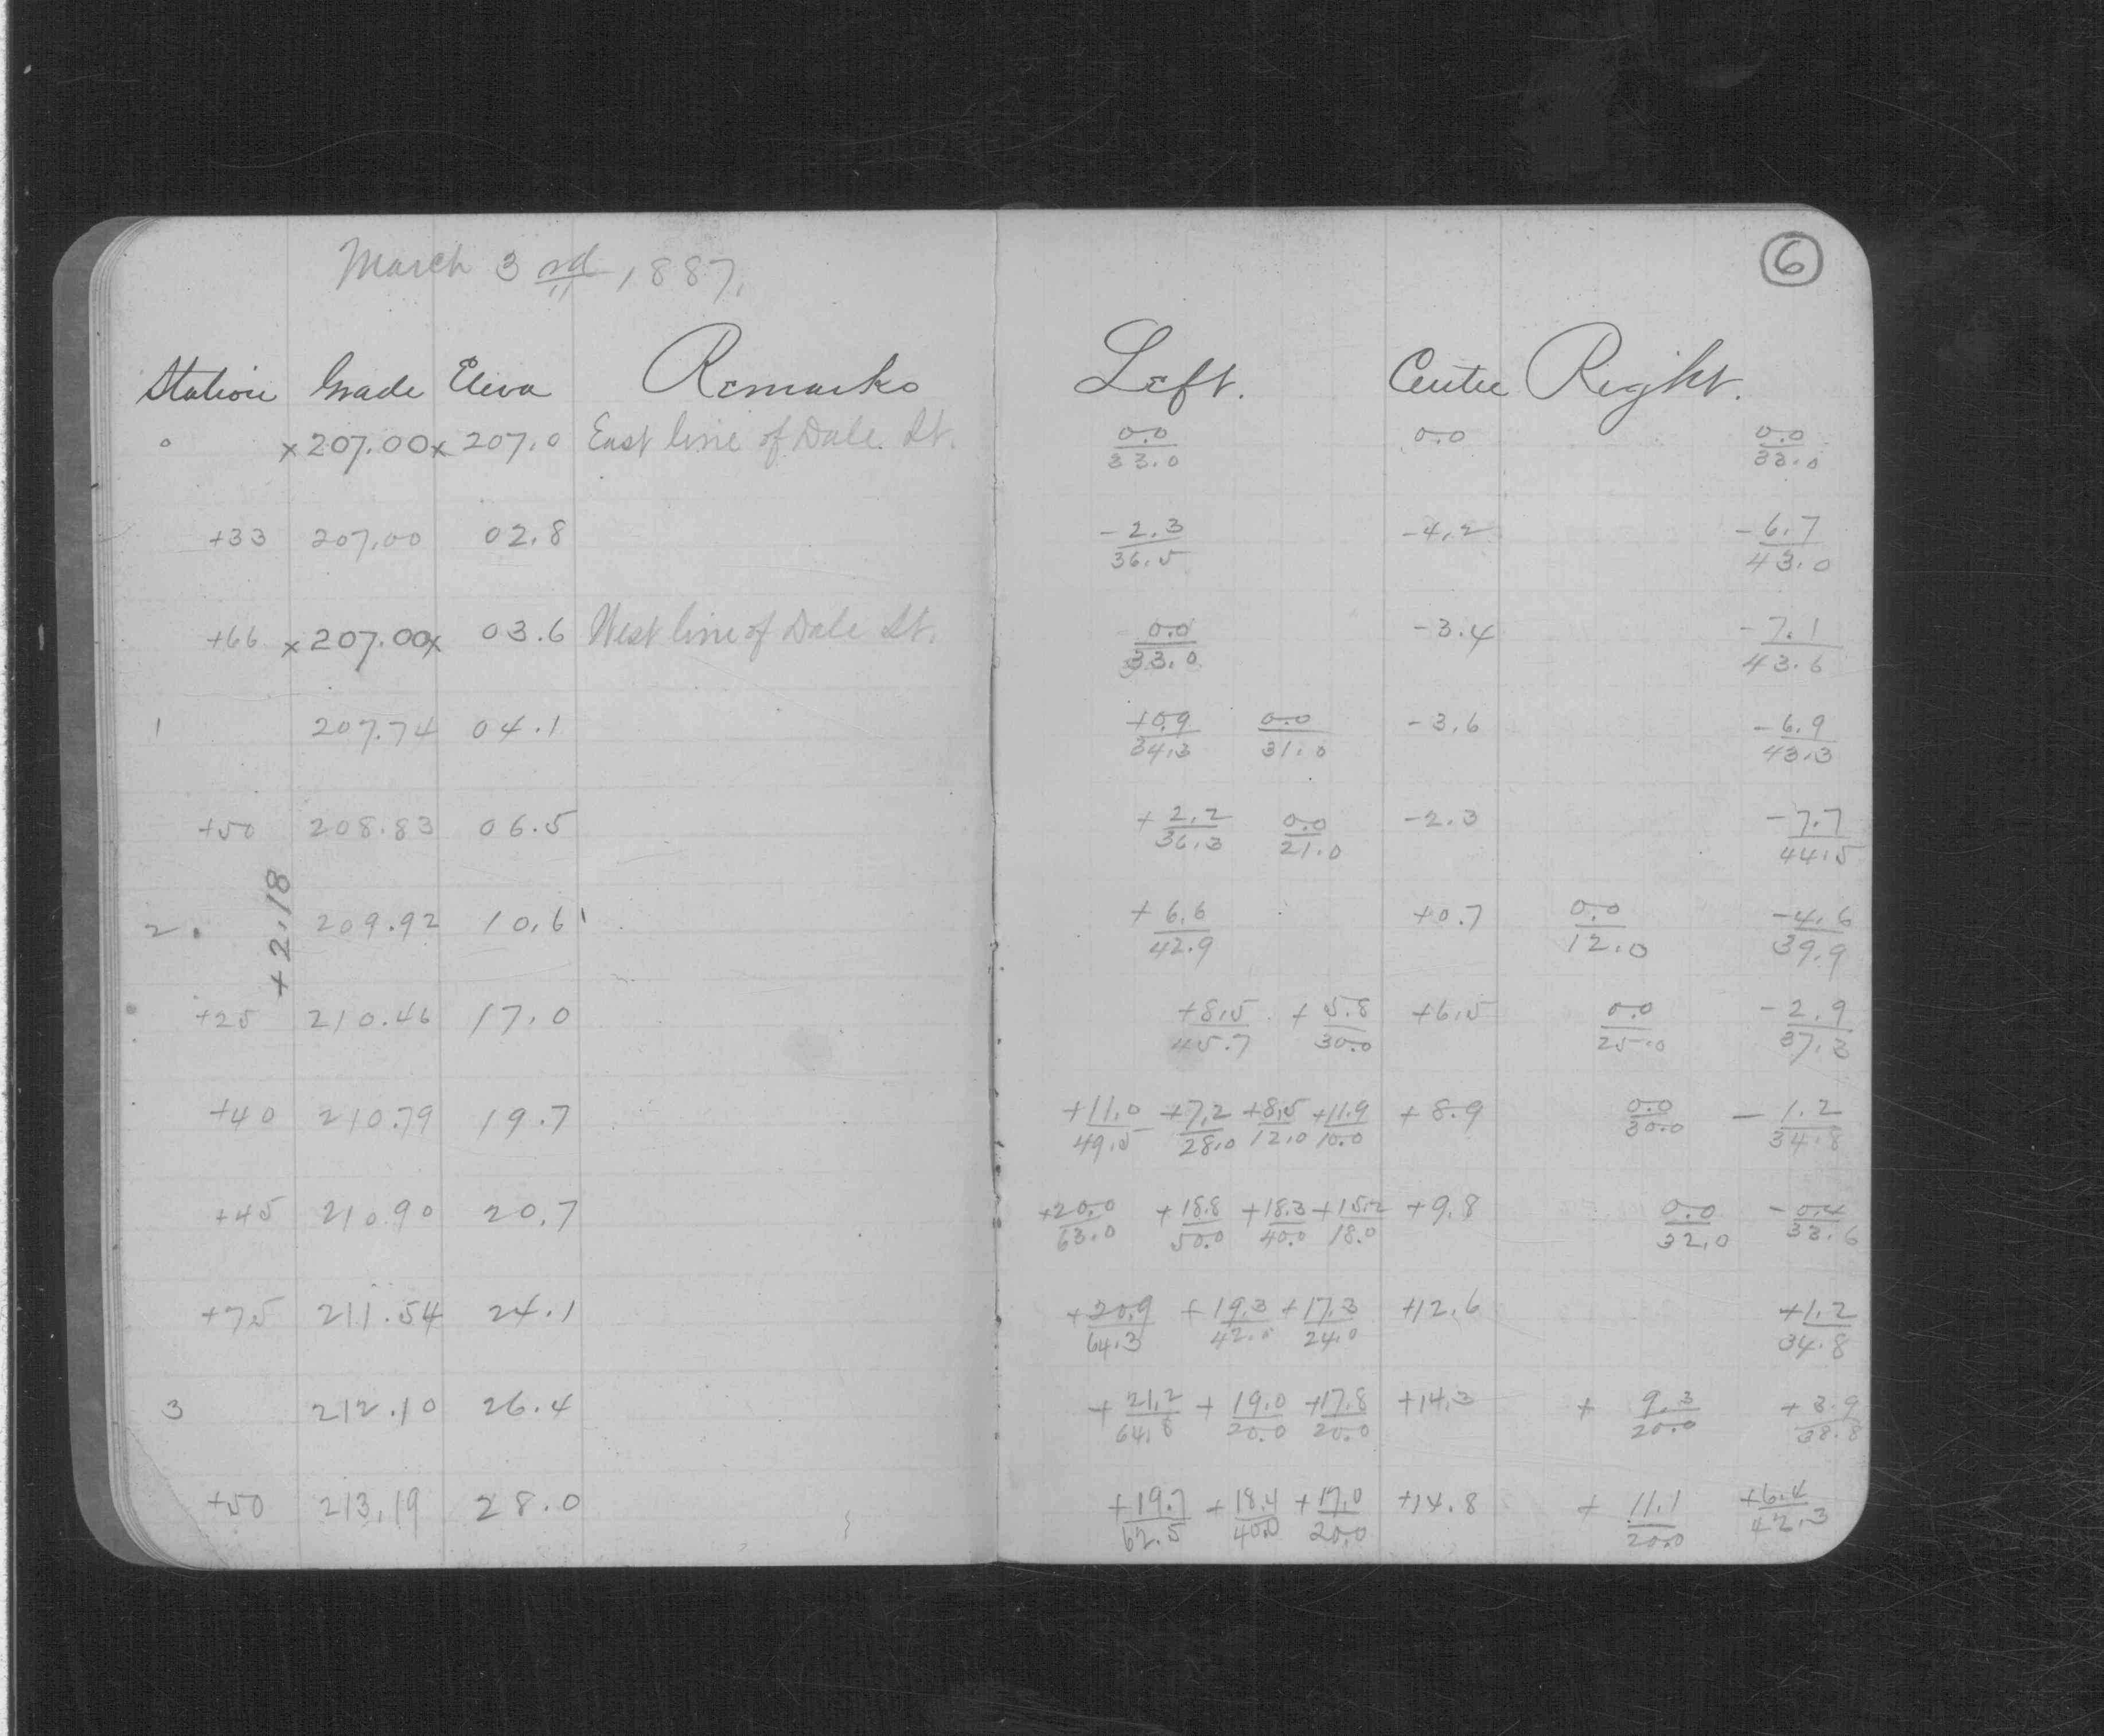 6
March 3rd, 1887.
Station Grade Eleva Remarks Left. Centre Right.
0 x 207.00 x 207.0 East line of Dale. St. 0.0/33.0 0.0 0.0/33.0
+33 207.00 02.8 -2.3/36.5 -4.2 -6.7/43.0
+66 x 207.00 x 03.6 West line of Dale St. 0.0/33.0 -3.4 -7.1/43.6
1 207.74 04.1 +0.9/34.3 0.0/31.0 -3.6 -6.9/43.3
+50 208.83 06.5 +2.2/36.3 0.0/21.0 -2.3 -7.7/44.5
+2.18
2. 209.92 10.6 +6.6/42.9 +0.7 0.0/12.0 -4.6/39.9
+25 210.46 17.0 +8.5/45.7 +5.8/30.0 +6.5 0.0/25.0 -2.9/37.3
+40 210.79 19.7 +11.0/49.5 +7.2/28.0 +8.5/12.0 +11.9/10.0 +8.9 0.0/30.0 -1.2/34.8
+45 210.90 20.7 +20.0/63.0 +18.8/50.0 +18.3/40.0 +15.2/18.0 +9.8 0.0/32.0 -0.4/33.6
+75 211.54 24.1 +20.9/64.3 +19.3/42.0 +17.3/24.0 +12.6 +1.2/34.8
3 212.10 26.4 +21.2/64.8 +19.0/20.0 +17.8/20.0 +14.3 +9.3/20.0 +3.9/38.8
+50 213.19 28.0 +19.7/62.5 +18.4/40.0 +17.0/20.0 +14.8 +11.1/20.0 +6.4/42.3